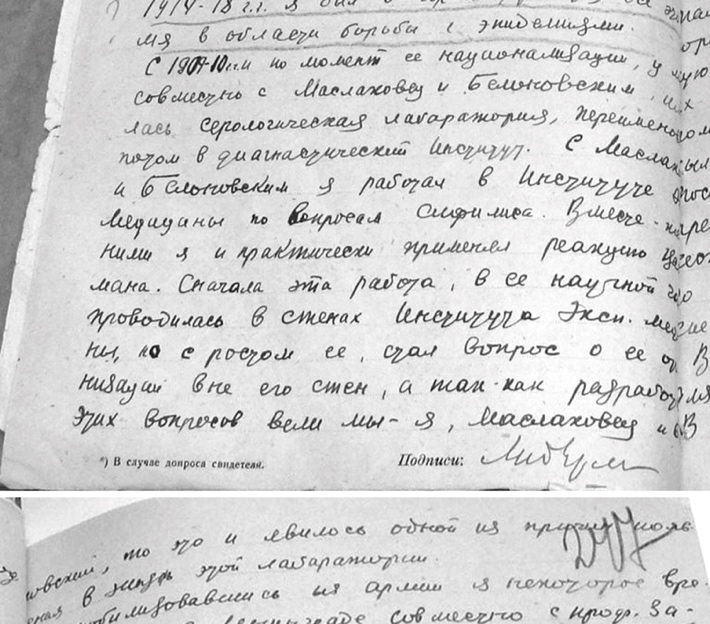 1914-18 г.г. я был
мя в области борьбы с эпидемиями.
С 1909-10 г. и по момент ее национализации, у
совместно с Маслаковец и Белоновским, их
лась серологическая лабаратория, переимено
потом в диагнастический Институт. С Маслак
и Белоновским я работал в Институте
Медицины по вопросам сифилиса. Вместе с
ними я и практически применял реакцию
мана. Сначала эта работа, в ее научной
проводилась в стенах Института Эксп. меди
ны, но с ростом ее, стал вопрос о ее ор
низации вне его стен, а так-как разработ
этих вопросов вели мы - я, Маслаковец и
*) В случае допроса свидетеля.
Подписи: Либерм
новский, то это и явилось одной из причин
в жизнь этой лабаратории.
мобилизовавшись из армии я некоторое вре-
совместно с проф. За-